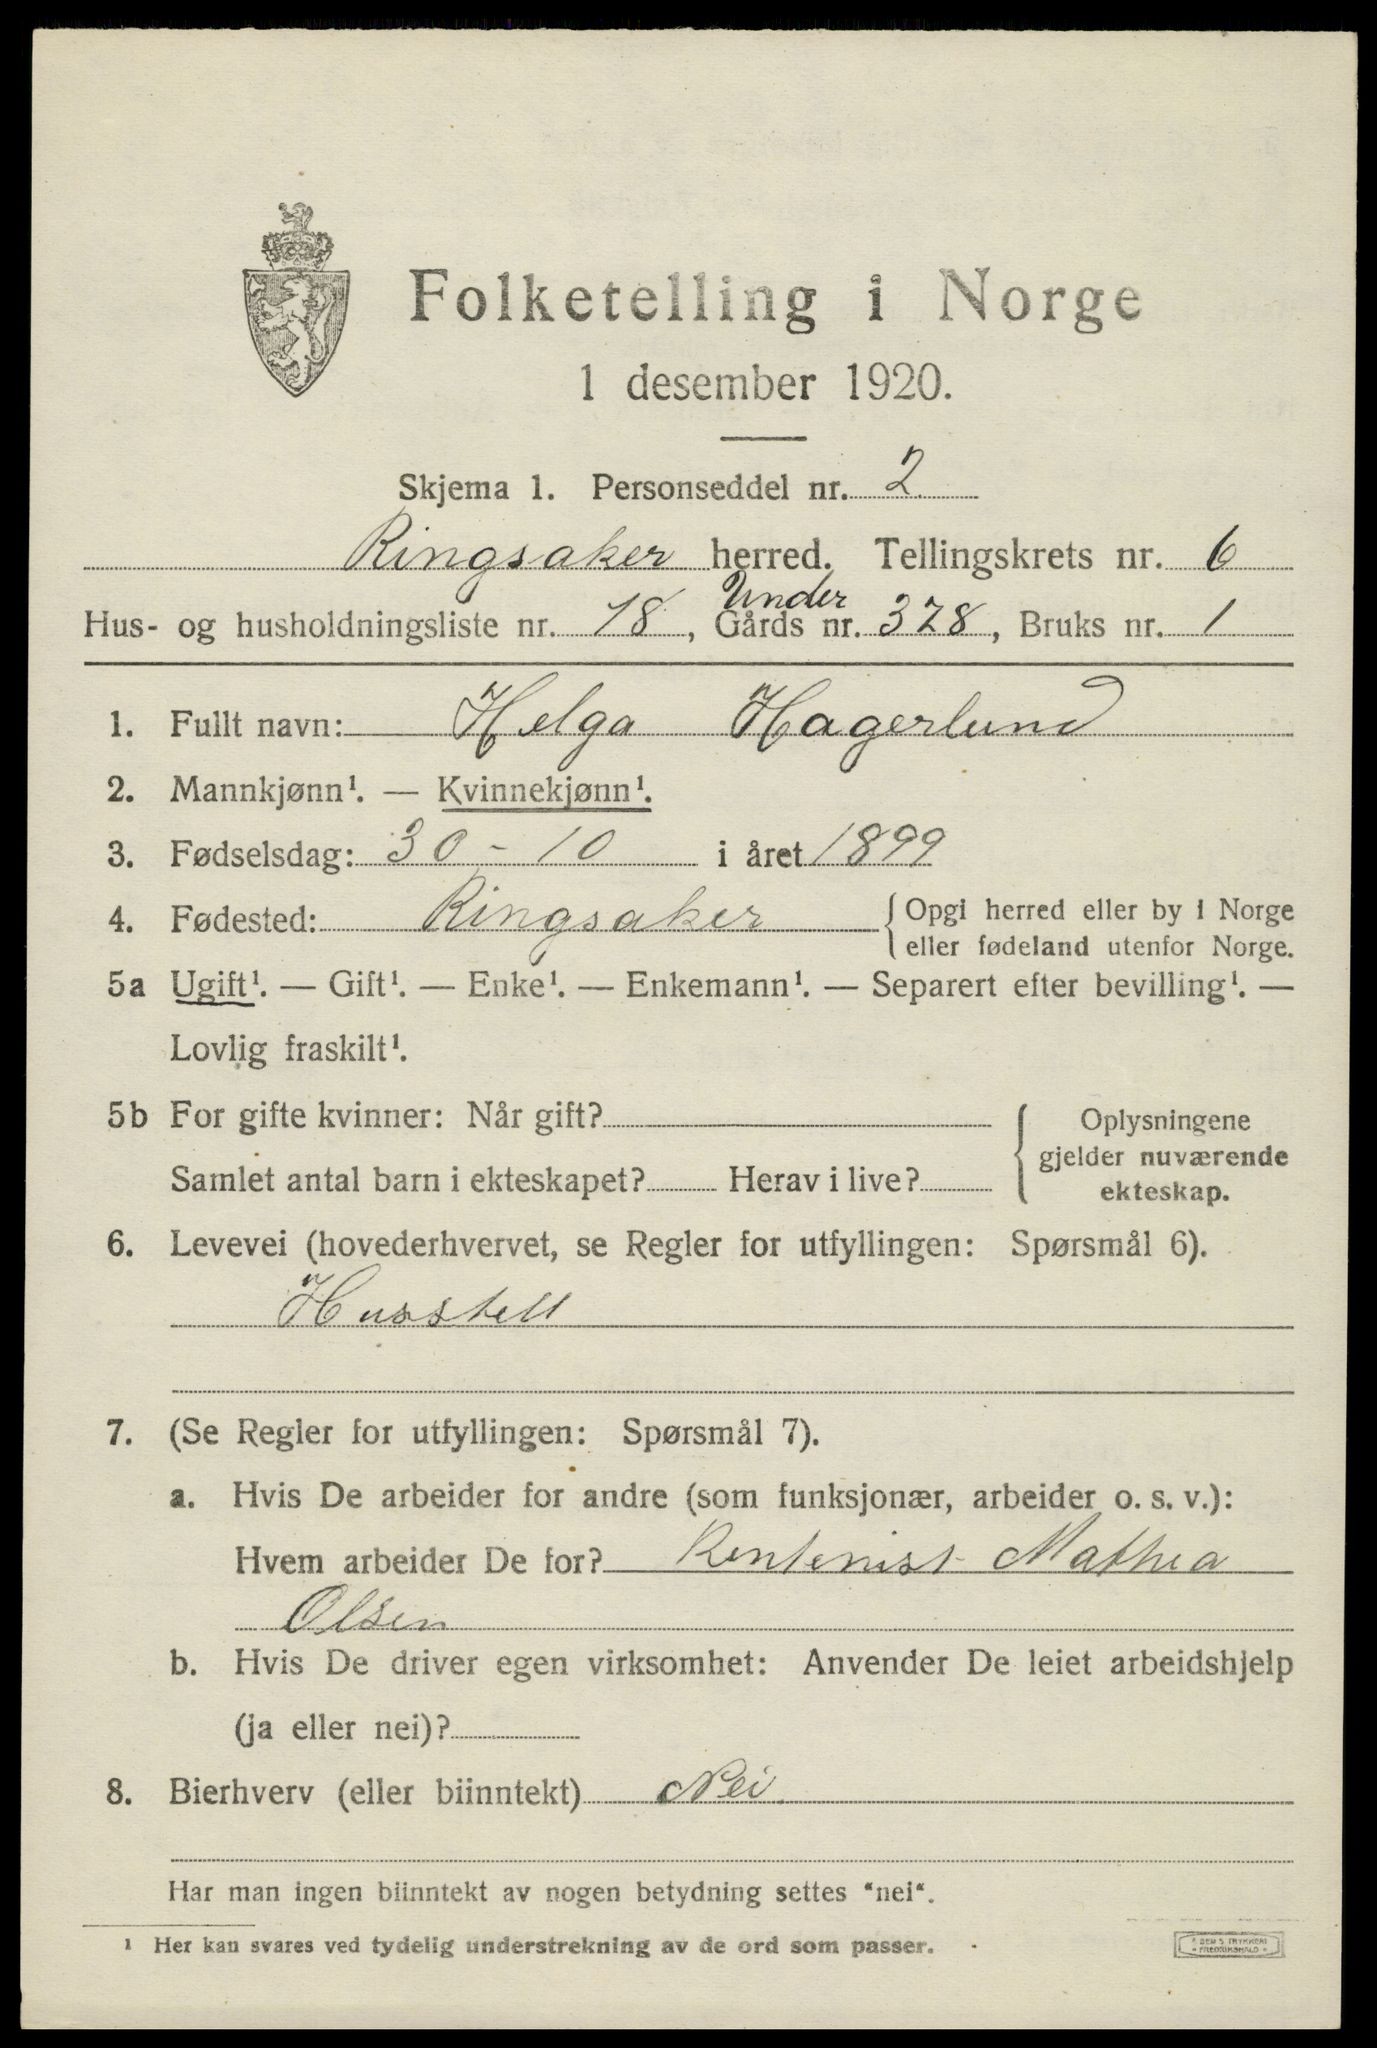 Folketelling i Norge
1 desember 1920.
Skjema 1. Personseddel nr. 2
Ringsaker herred. Tellingskrets nr. 6
Under
Hus- og husholdningsliste nr. 18, Gårds nr. 328, Bruks nr. 1
1. Fullt navn: Helga Hagerlund
2. Mannkjønn¹. — Kvinnekjønn¹.
3. Fødselsdag: 30 - 10 i året 1899
4. Fødested: Ringsaker { Opgi herred eller by i Norge
eller fødeland utenfor Norge.
5a Ugift¹. — Gift¹. — Enke¹. — Enkemann¹. — Separert efter bevilling¹. —
Lovlig fraskilt¹.
5b For gifte kvinner: Når gift?
Samlet antal barn i ekteskapet? Herav i live?
Oplysningene
gjelder nuværende
ekteskap.
6. Levevei (hovederhvervet, se Regler for utfyllingen: Spørsmål 6).
Husstell
7. (Se Regler for utfyllingen: Spørsmål 7).
a. Hvis De arbeider for andre (som funksjonær, arbeider o. s. v.):
Hvem arbeider De for? Rentenist Mathea
Olsen
b. Hvis De driver egen virksomhet: Anvender De leiet arbeidshjelp
(ja eller nei)?
8. Bierhverv (eller biinntekt) Nei.
Har man ingen biinntekt av nogen betydning settes "nei".
¹ Her kan svares ved tydelig understrekning av de ord som passer.